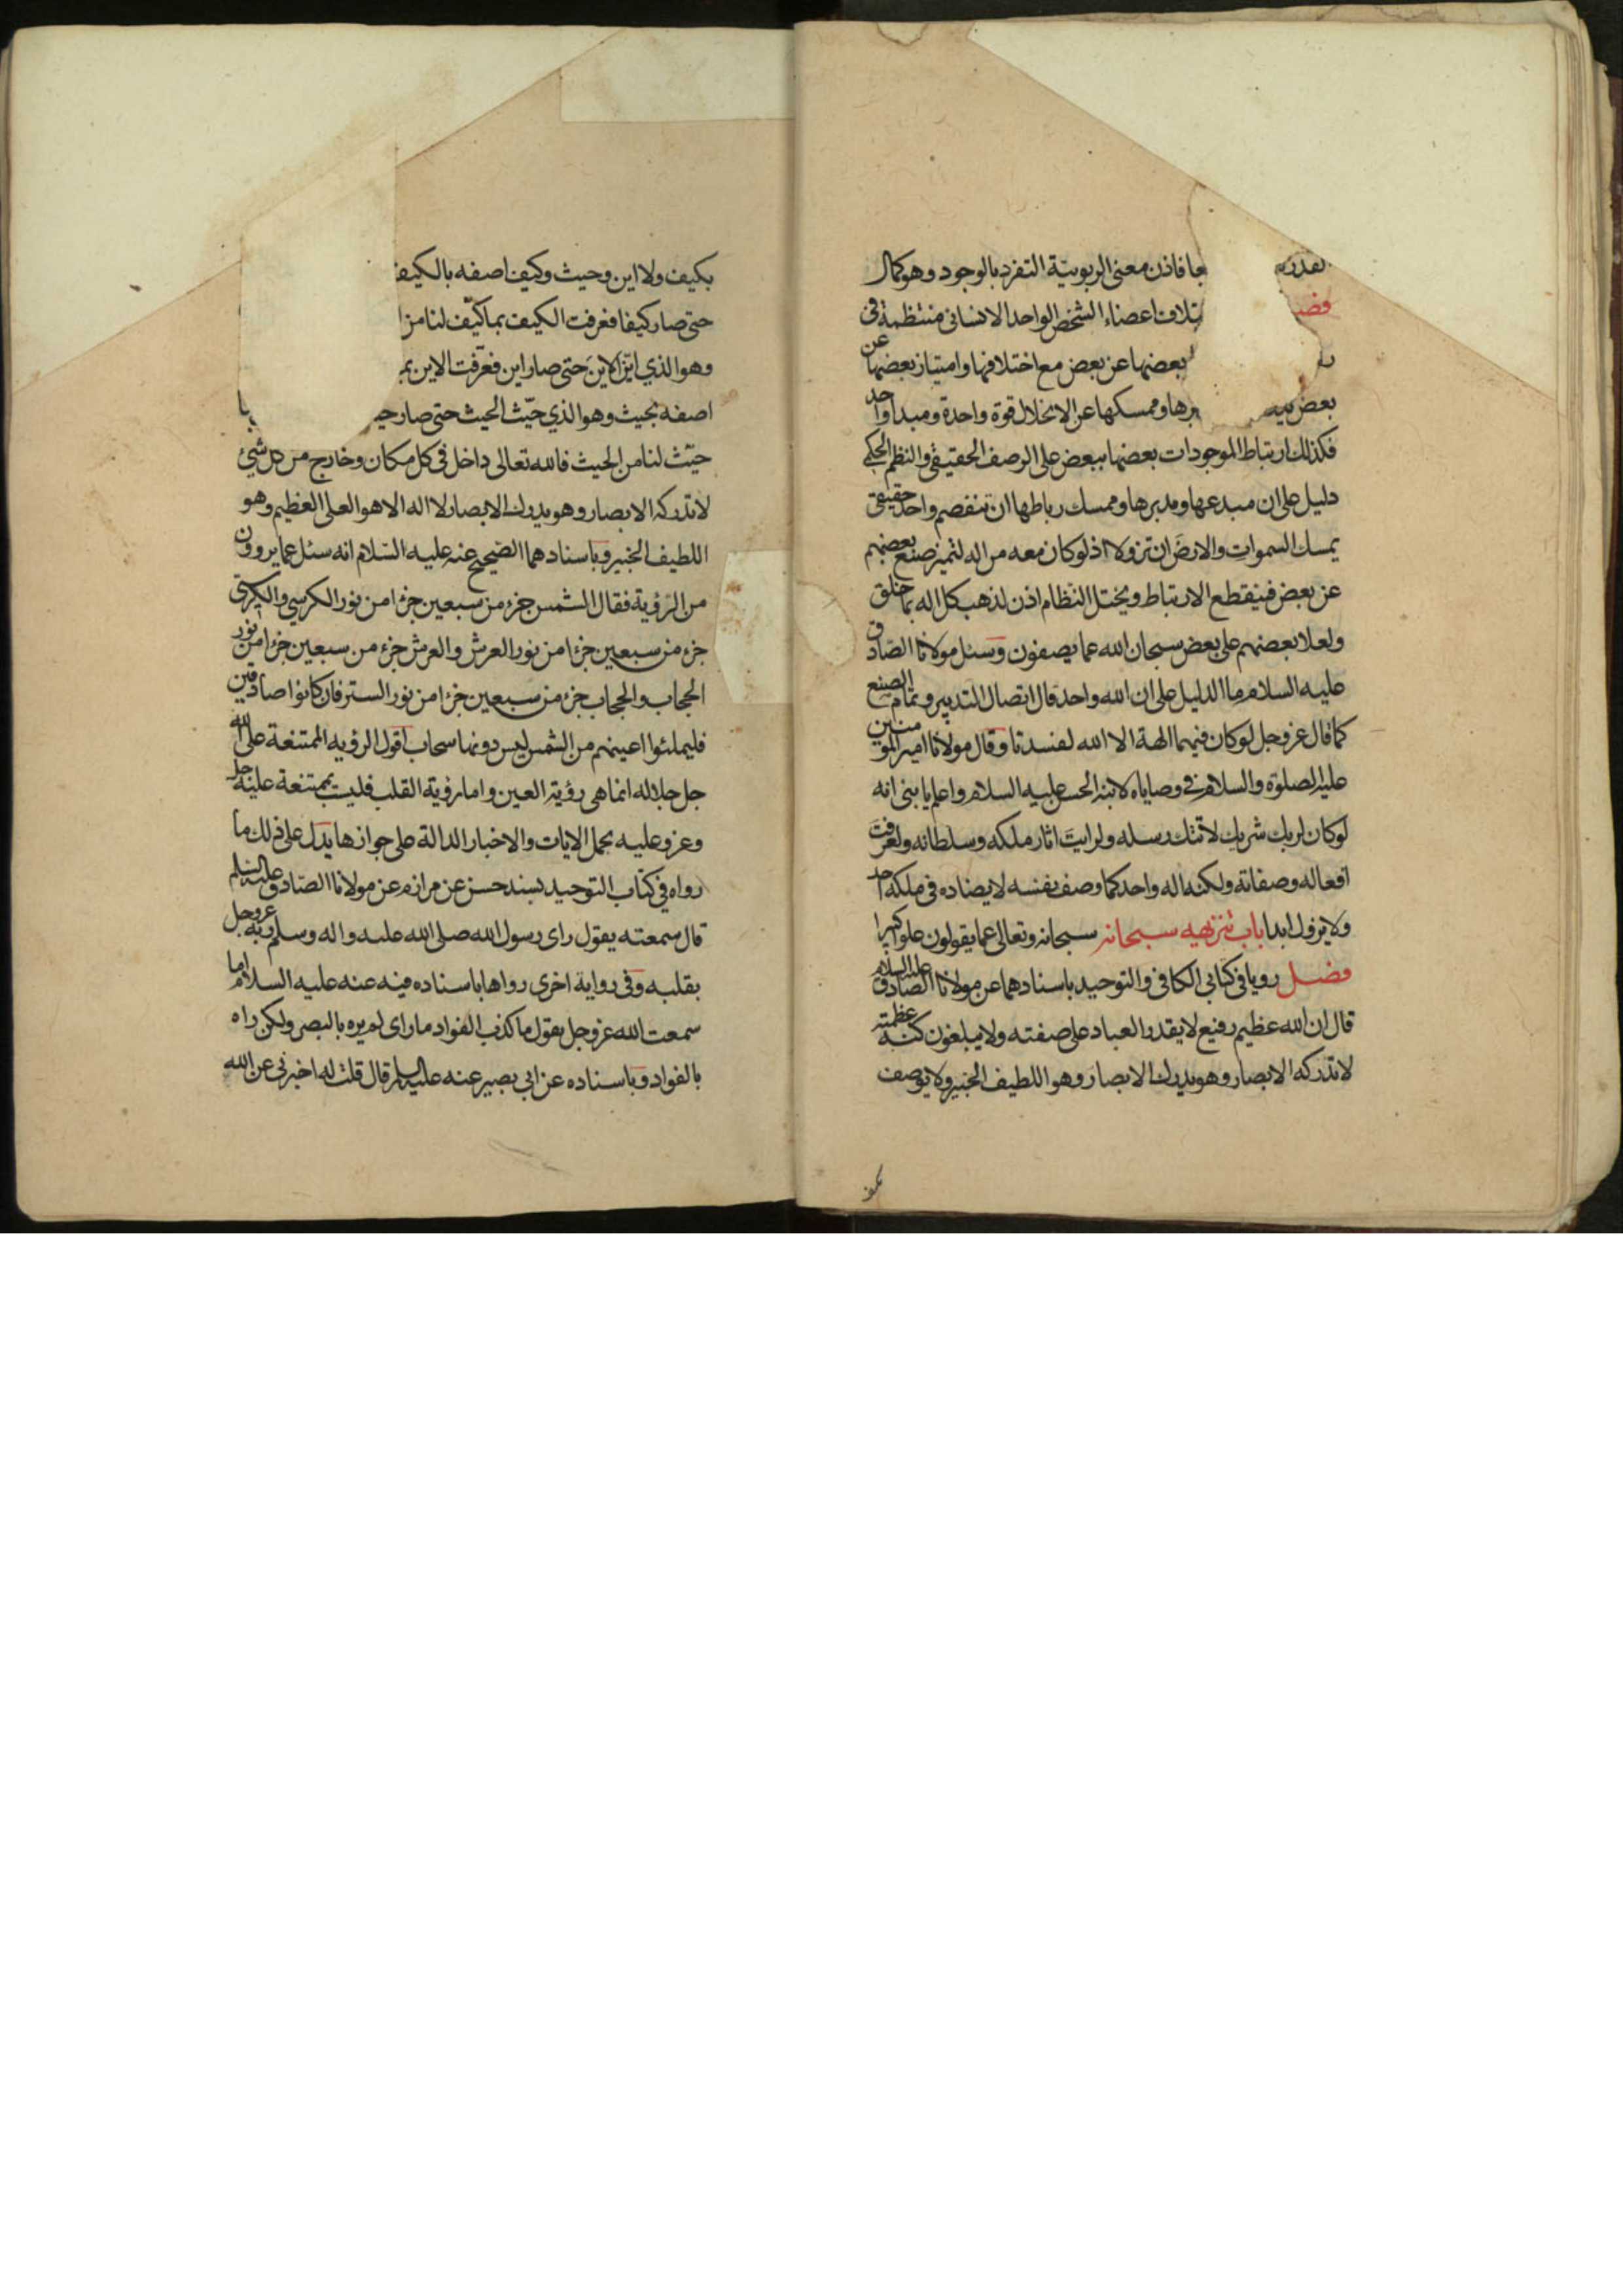 بقدرته جا فاذن معنى الربوبيّة التفرد بالوجود وهو كمال
فصل تلاف اعضاء الشخص الواحد الانسانى منتظمة فى
بعضها عن بعض مع اختلافها وامتياز بعضها عن
بعض برها وممسكها عن الانحلال قوة واحدة ومبدا واحد
فكذلك ارتباط الموجودات بعضها ببعض على الرصف الحقيقى والنظم الحكمى
دليل على ان مبدعها ومدبرها وممسك رباطها ان تنفصم واحد حقيقى
يمسك السموات والارض ان تزولا اذ لو كان معه من اله لتميز صنع بعضهم
عن بعض فينقطع الارتباط ويختل النظام اذن لذهب كل اله بما خلق
ولعلا بعضهم على بعض سبحان الله عما يصفون وسئل مولانا الصادق
عليه السلام ما الدليل على ان الله واحد قال اتصال التدبير وتمام الصنع
كما قال عز وجل لو كان فيهما الهة الا الله لفسدتا وقال مولانا امير المومنين
عليه الصلوة والسلام فى وصاياه لابنه الحسن عليه السلام واعلم يا بنى انه
لو كان لربك شريك لاتتك رسله ولرايت اثار ملكه وسلطانه ولعرفت
افعاله وصفاته ولكنه اله واحد كما وصف نفسه لا يضاده فى ملكه احد
ولا يزول ابدا باب تنزيهه سبحانه سبحانه وتعالى عما يقولون علوا كبيرا
فصل رويا فى كتابى الكافى والتوحيد باسنادهما عن مولانا الصادق عليه السلام
قال ان الله عظيم رفيع لا يقدر العباد على صفته ولا يبلغون كنه عظمته
لا تدركه الابصار وهو يدرك الابصار وهو اللطيف الخبير ولا يوصف
بكيف
بكيف ولا اين وحيث وكيف اصفه بالكيف
حتى صار كيفا فعرفت الكيف بما كيّف لنا من ا
وهو الذي ايّن الاين حتى صار اين فعرّفت الاين بم
اصفه بحيث وهو الذي حيّث الحيث حتى صار حيـ
حيّث لنا من الحيث فالله تعالى داخل فى كل مكان وخارج من كل شئ
لا تدركه الابصار وهو يدرك الابصار لا اله الا هو العلى العظيم وهو
اللطيف الخبير وباسنادهما الصحيح عنه عليه السلام انه سئل عما يروون
من الرؤية فقال الشمس جزء من سبعين جزءا من نور الكرسي والكرسى
جزء من سبعين جزءا من نور العرش والعرش جزء من سبعين جزءا من نور
الحجاب والحجاب جزء من سبعين جزءا من نور الستر فان كانوا صادقين
فليملئوا اعينهم من الشمس ليس دونها سحاب اقول الرؤيه الممتنعة على الله
جل جلاله انما هى رؤية العين واما رؤية القلب فليست بممتنعة عليه جل
وعز وعليه يحمل الايات والاخبار الدالة على جوازها يدل على ذلك ما
رواه فى كتاب التوحيد بسند حسن عن مرازم عن مولانا الصادق عليه السلم
قال سمعته يقول راى رسول الله صلى الله عليه واله وسلم ربه عز وجل
بقلبه وفى رواية اخرى رواها باسناده فيه عنه عليه السلام اما
سمعت الله عز وجل يقول ما كذب الفواد ما راى لم يره بالبصر ولكن راه
بالفواد وباسناده عن ابى بصير عنه عليه السلم قال قلت له اخبرنى عن الله